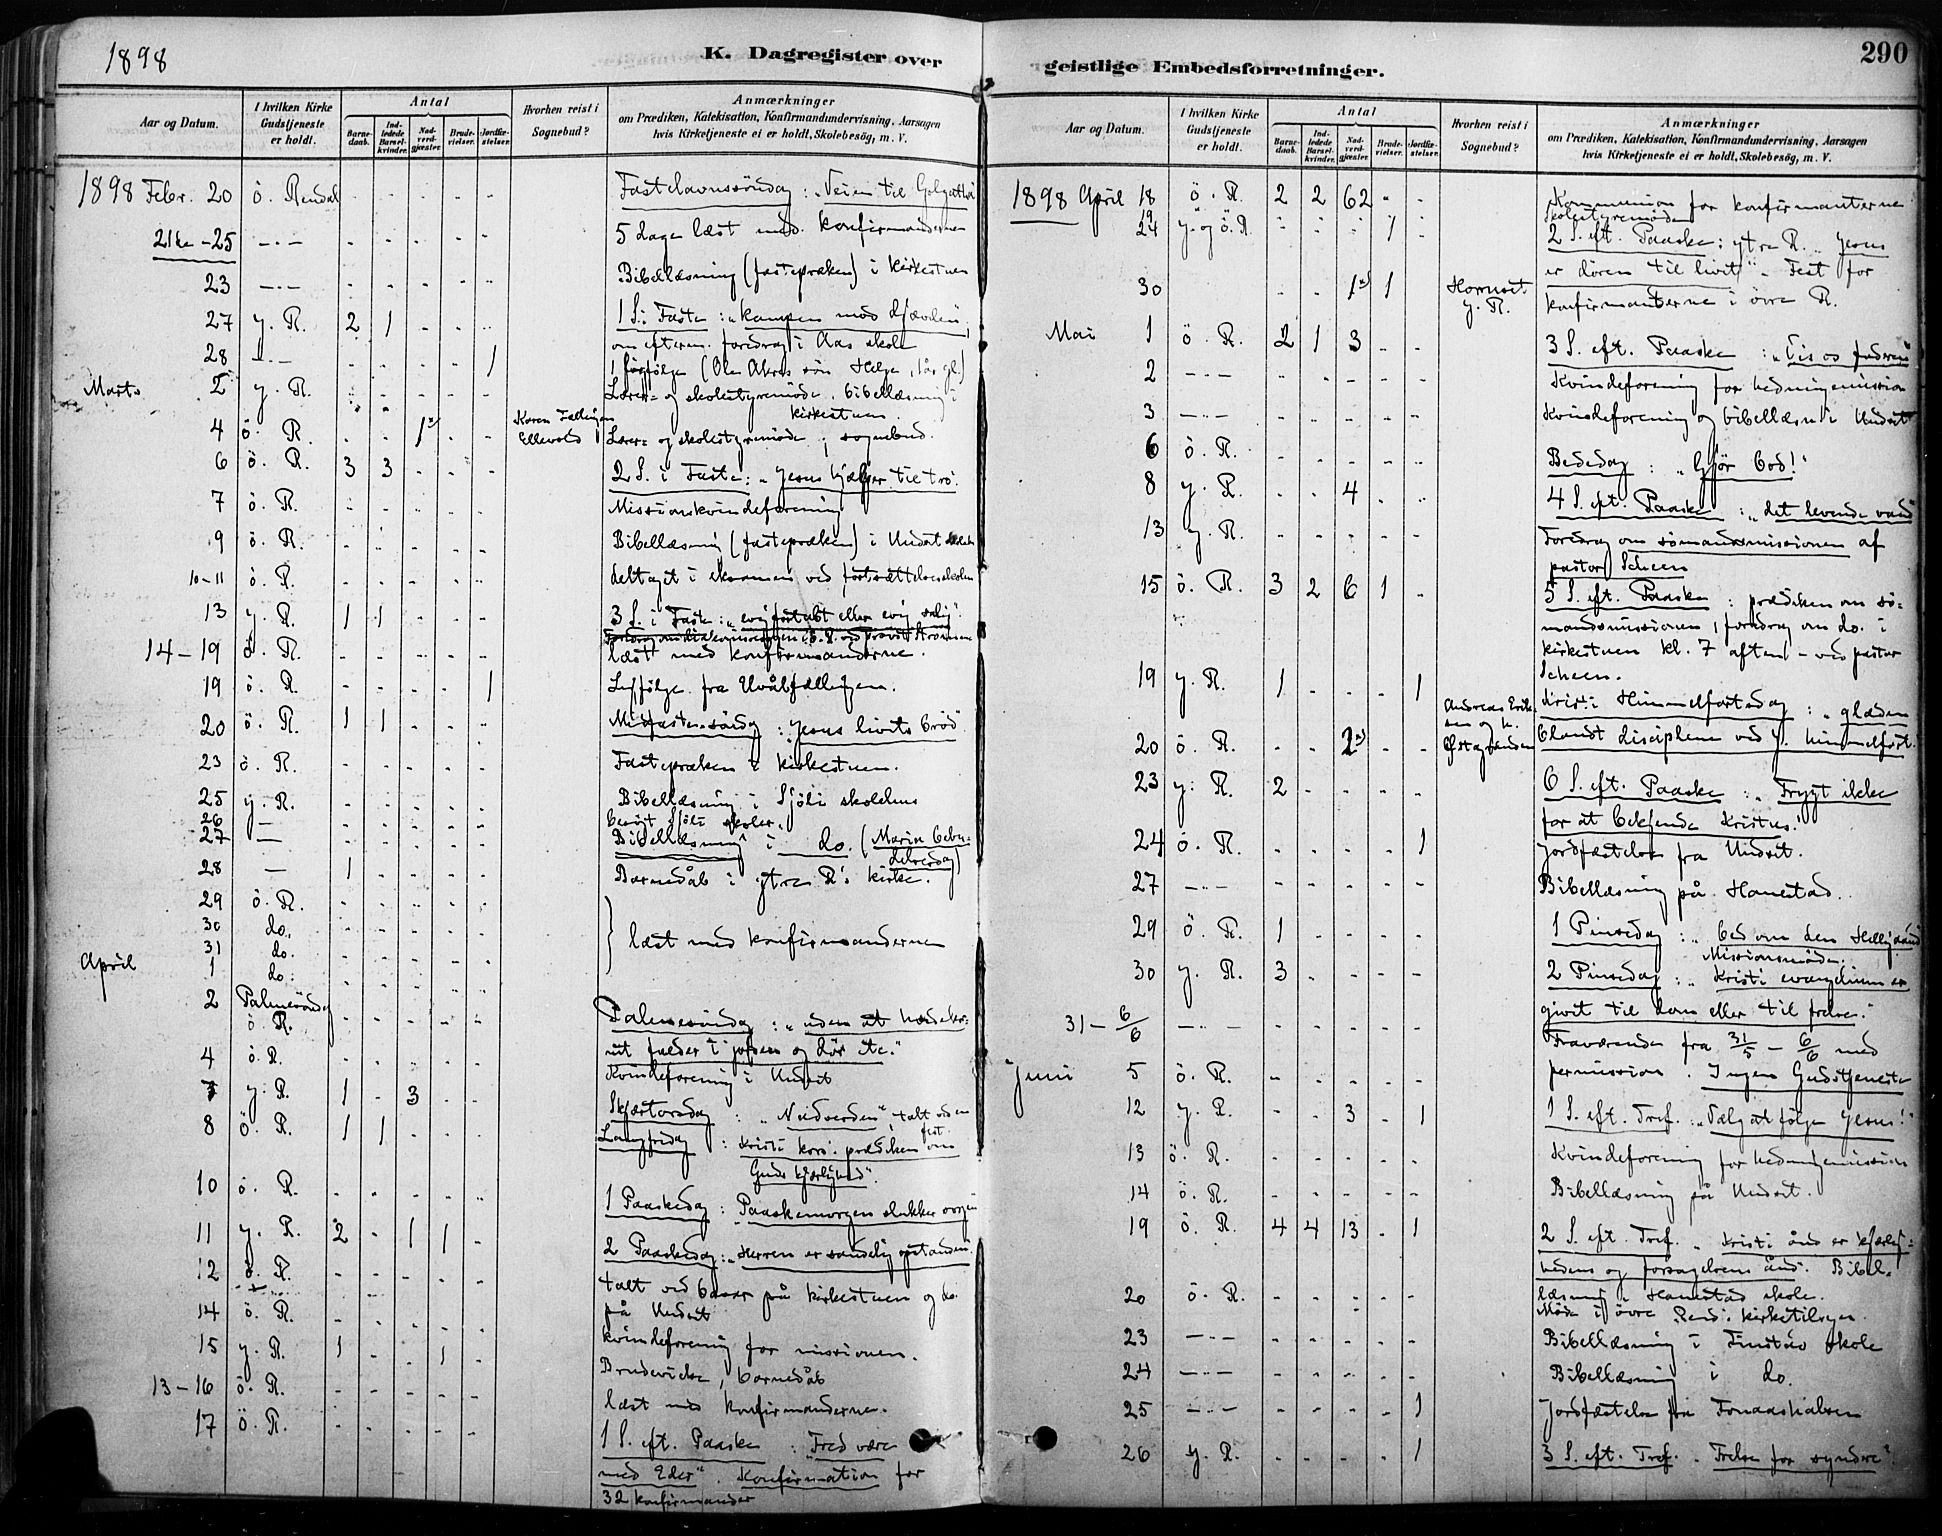 1898
K. Dagregister over
Aar og Datum.
I hvilken Kirke Gudstjeneste er holdt.
Antal
Barnedaab.
Indledede Barselkvinder.
Nadverdgjæster.
Brudevielser.
Jordfæstelser.
Hvorhen reist i Sognebud?
Anmærkninger
om Prædiken, Katekisation, Konfirmandundervisning, Aarsagen
hvis Kirketjeneste ei er holdt, Skolebesög, m. V.
1898 Febr. 20 ö. Rendal Fastelavnssöndag: „Veien til Golgatha
21de-25 5 dage læst med konfirmanderne
23 Bibellæsning (fastepræken) i kirkestuen
27 y. R. 2 1 1 S. i Faste: „Kampen mod djævelen",
om efterm. foredrag i Aas skole
28 1
Marts 2 y. R. Lærer- og skolestyremöde, bibellæsning i
kirkestuen.
4 ö. R. 1 Karen
Ellevold Lærer- og skolestyremöde, sognebud.
6 ö. R. 3 3 2 S. i Faste: „Jesus hjælper til tro.
7 ö. R. Missionskvindeforening
9 ö. R. Bibellæsning (fastepræken) i Undset
10-11 ö. R. deltaget i eksamen ved fortsættelsesskolen
13 y. R. 1 1 3 S. i Faste: „evig fortabt eller evig salig".
14-19 ö. R. læst med konfirmanderne.
19 ö. R. 1
20 ö. R. 1 1 Midfastesöndag: Jesus livets bröd
23 ö. R. Fastepræken i kirkestuen.
25 y. R. Bibellæsning i Sjöli skolehus
26 besögt Sjöli skole.
27 Bibellæsning i do. (Mariæ bebudelsesdag)
28 1 Barnedåb i ytre R's kirke.
29 ö. R.
30 do. læst med konfirmanderne
31 do.
April 1 do.
2 Palmesöndag
ö. R. Palmesöndag: „uden at hvedekornet
falder i jorden og dör etc."
4 ö. R. Kvindeforening i Undset
7 y. R. 1 3 Skjærtorsdag: „Nadverden", talt
8 ö. R. 1 1 Langfredag: Kristi kors. prædiken om
Guds kjærlighed".
10 ö. R. 1 Paaskedag: Paaskemorgen slukker sorgen
11 y. R. 2 1 1 2 Paaskedag: „Herren er sandelig opstanden.
12 ö. R. talt ved basar på kirkestuen og do.
på Undset
14 ö. R. kvindeforening for missionen.
15 y. R. 1 1 Brudevielse, barnedåb
13-16 ö. R. læst med konfirmanderne.
17 ö. R. 1 S. eft. Paaske „Fred være
med Eder". Konfirmation for
32 konfirmander
geistlige Embedsforretninger.
290
Aar og Datum.
I hvilken Kirke Gudstjeneste er holdt.
Antal
Barnedaab.
Indledede Barselkvinder.
Nadverdgjæster.
Brudevielser.
Jordfæstelser.
Hvorhen reist i Sognebud?
Anmærkninger
om Prædiken, Katekisation, Konfirmandundervisning, Aarsagen
hvis Kirketjeneste ei er holdt, Skolebesög, m. V.
1898 April 18 ö. R. 2 2 62 Kommunion for konfirmanterne
19 Skolestyremöde
24 y. og ö. R. 1 2 S. eft. Paaske: ytre R. „Jesus
er dören til livet" - Fest for
konfirmanterne i övre R.
30 1 1 Hornset
y. R.
Mai 1 ö. R. 2 1 3 3 S. eft. Paaske: „Vis os faderen
2 Kvindeforening for hedningemission
3 Kvindeforening og bibellæsn. i Undset
6 ö. R. Bededag: „Gjör bod!"
8 y. R. 4 4 S. eft. Paaske: „det levende vand"
13 y. R. Foredrag om sömandsmissionen af
pastor Scheen
15 ö. R. 3 2 6 1 5 S. eft. Paaske: prædiken om sö-
mandsmissionen, foredrag om do. i
kirkestuen kl. 7 aften - ved pastor
Scheen.
19 y. R. 1 1 Kristi Himmelfartsdag: „glæden
blandt disciplene ved J. himmelfart.
20 ö. R. 2 Andreas Erik-
sen og h.
23 y. R. 2 6 S. eft. Paaske: „Frygt ikke
for at bekjende Kristus!
24 ö. R. 1 Jordfæstelse fra Undset.
27 Bibellæsning på Hanestad.
29 ö. R. 1 1 Pinsedag: „bed om den Hellig ånd
Missionsmöde.
30 y. R. 3 2 Pinsedag: „Kristi evangelium er
givet til dom eller til frelse."
31 - 6/6 Fraværende fra 31/5 - 6/6 med
permission. Ingen Gudstjeneste
Juni 5 ö. R.
12 y. R. 3 1 1 S. eft. Tref. „Vælg at fölge Jesus!"
13 ö. R. Kvindeforening for hedningemission
14 ö. R. Bibellæsning på Undset.
19 ö. R. 4 4 13 1 2 S. eft. Tref. „Kristi ånd er kjærlig-
hedens og forsagelsens ånd. Bibel-
læsning i Hanestad skole.
20 ö. R. Möde i övre Rend. kirketilsyn.
23 Bibellæsning i Finstad skole
24 Bibellæsning i do.
25 1 Jordfæstelse fra
26 y. R. 1 3 S. eft. Tref. „Frelse for syndre"